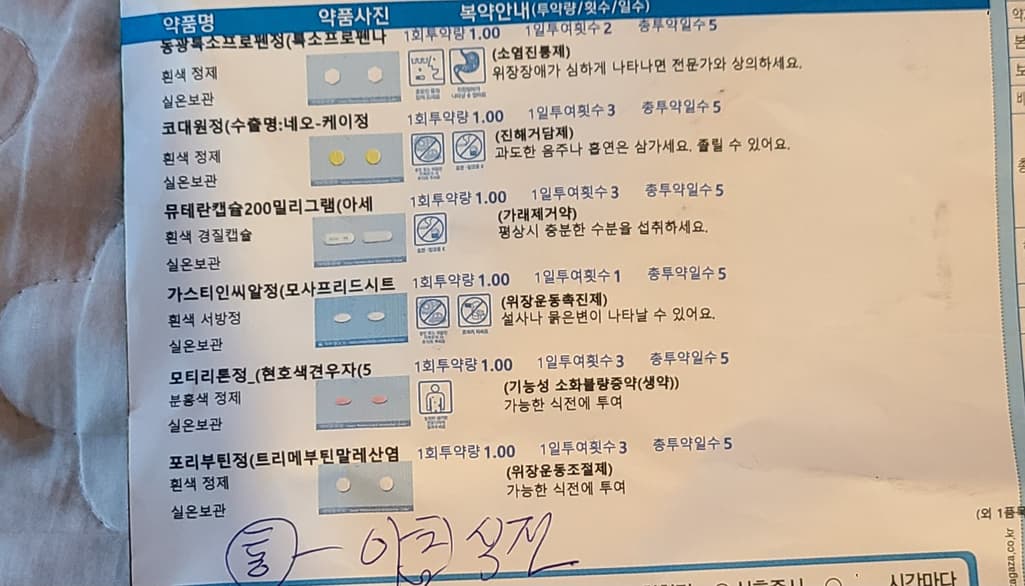 약품명 약품사진 복약안내(투약량/횟수/일수)
동광록소프로펜정(록소프로펜나 1회투약량 1.00 1일투여횟수 2 총투약일수 5
(소염진통제)
흰색 정제 위장장애가 심하게 나타나면 전문가와 상의하세요.
실온보관
코대원정(수출명:네오-케이정 1회투약량 1.00 1일투여횟수 3 총투약일수 5
(진해거담제)
흰색 정제 과도한 음주나 흡연은 삼가세요. 졸릴 수 있어요.
실온보관
뮤테란캡슐200밀리그램(아세 1회투약량 1.00 1일투여횟수 3 총투약일수 5
(가래제거약)
흰색 경질캡슐 평상시 충분한 수분을 섭취하세요.
실온보관
가스티인씨알정(모사프리드시트 1회투약량 1.00 1일투여횟수 1 총투약일수 5
(위장운동촉진제)
흰색 서방정 설사나 묽은변이 나타날 수 있어요.
실온보관
모티리톤정_(현호색견우자(5 1회투약량 1.00 1일투여횟수 3 총투약일수 5
(기능성 소화불량증약(생약))
분홍색 정제 가능한 식전에 투여
실온보관
포리부틴정(트리메부틴말레산염 1회투약량 1.00 1일투여횟수 3 총투약일수 5
(위장운동조절제)
흰색 정제 가능한 식전에 투여
실온보관
(외 1품목
통 - 아침 식전
시간마다
agaza.co.kr